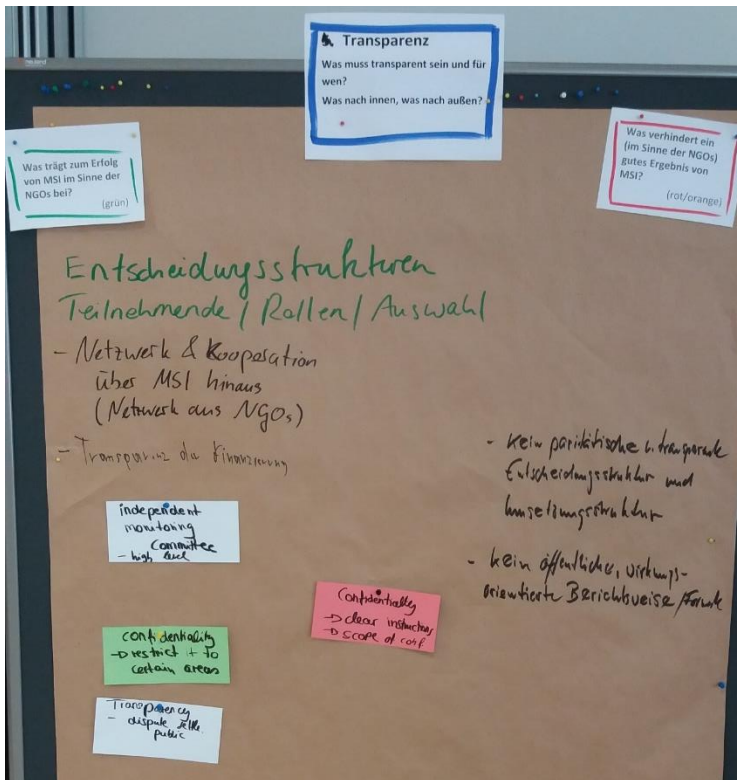 Transparenz
Was muss transparent sein und für
wen?
Was nach innen, was nach außen?
Was trägt zum Erfolg
von MSI im Sinne der
NGOs bei?
(grün)
Was verhindert ein
(im Sinne der NGOs)
gutes Ergebnis von
MSI?
(rot/orange)
Entscheidungsstrukturen
Teilnehmende / Rollen / Auswahl
- Netzwerk & Kooperation
über MSI hinaus
(Netzwerk aus NGOs)
- Transparenz der Finanzierung
independent
monitoring
committee
- high level
confidentiality
→ restrict + to
certain areas
Transparency
- dispute settle.
public
Confidentiality
→ clear instructions
→ scope of conf
- kein paritätische u. transparente
Entscheidungsstruktur und
Umsetzungsstruktur
- kein öffentliche, wirkungs-
orientierte Berichtsweise /